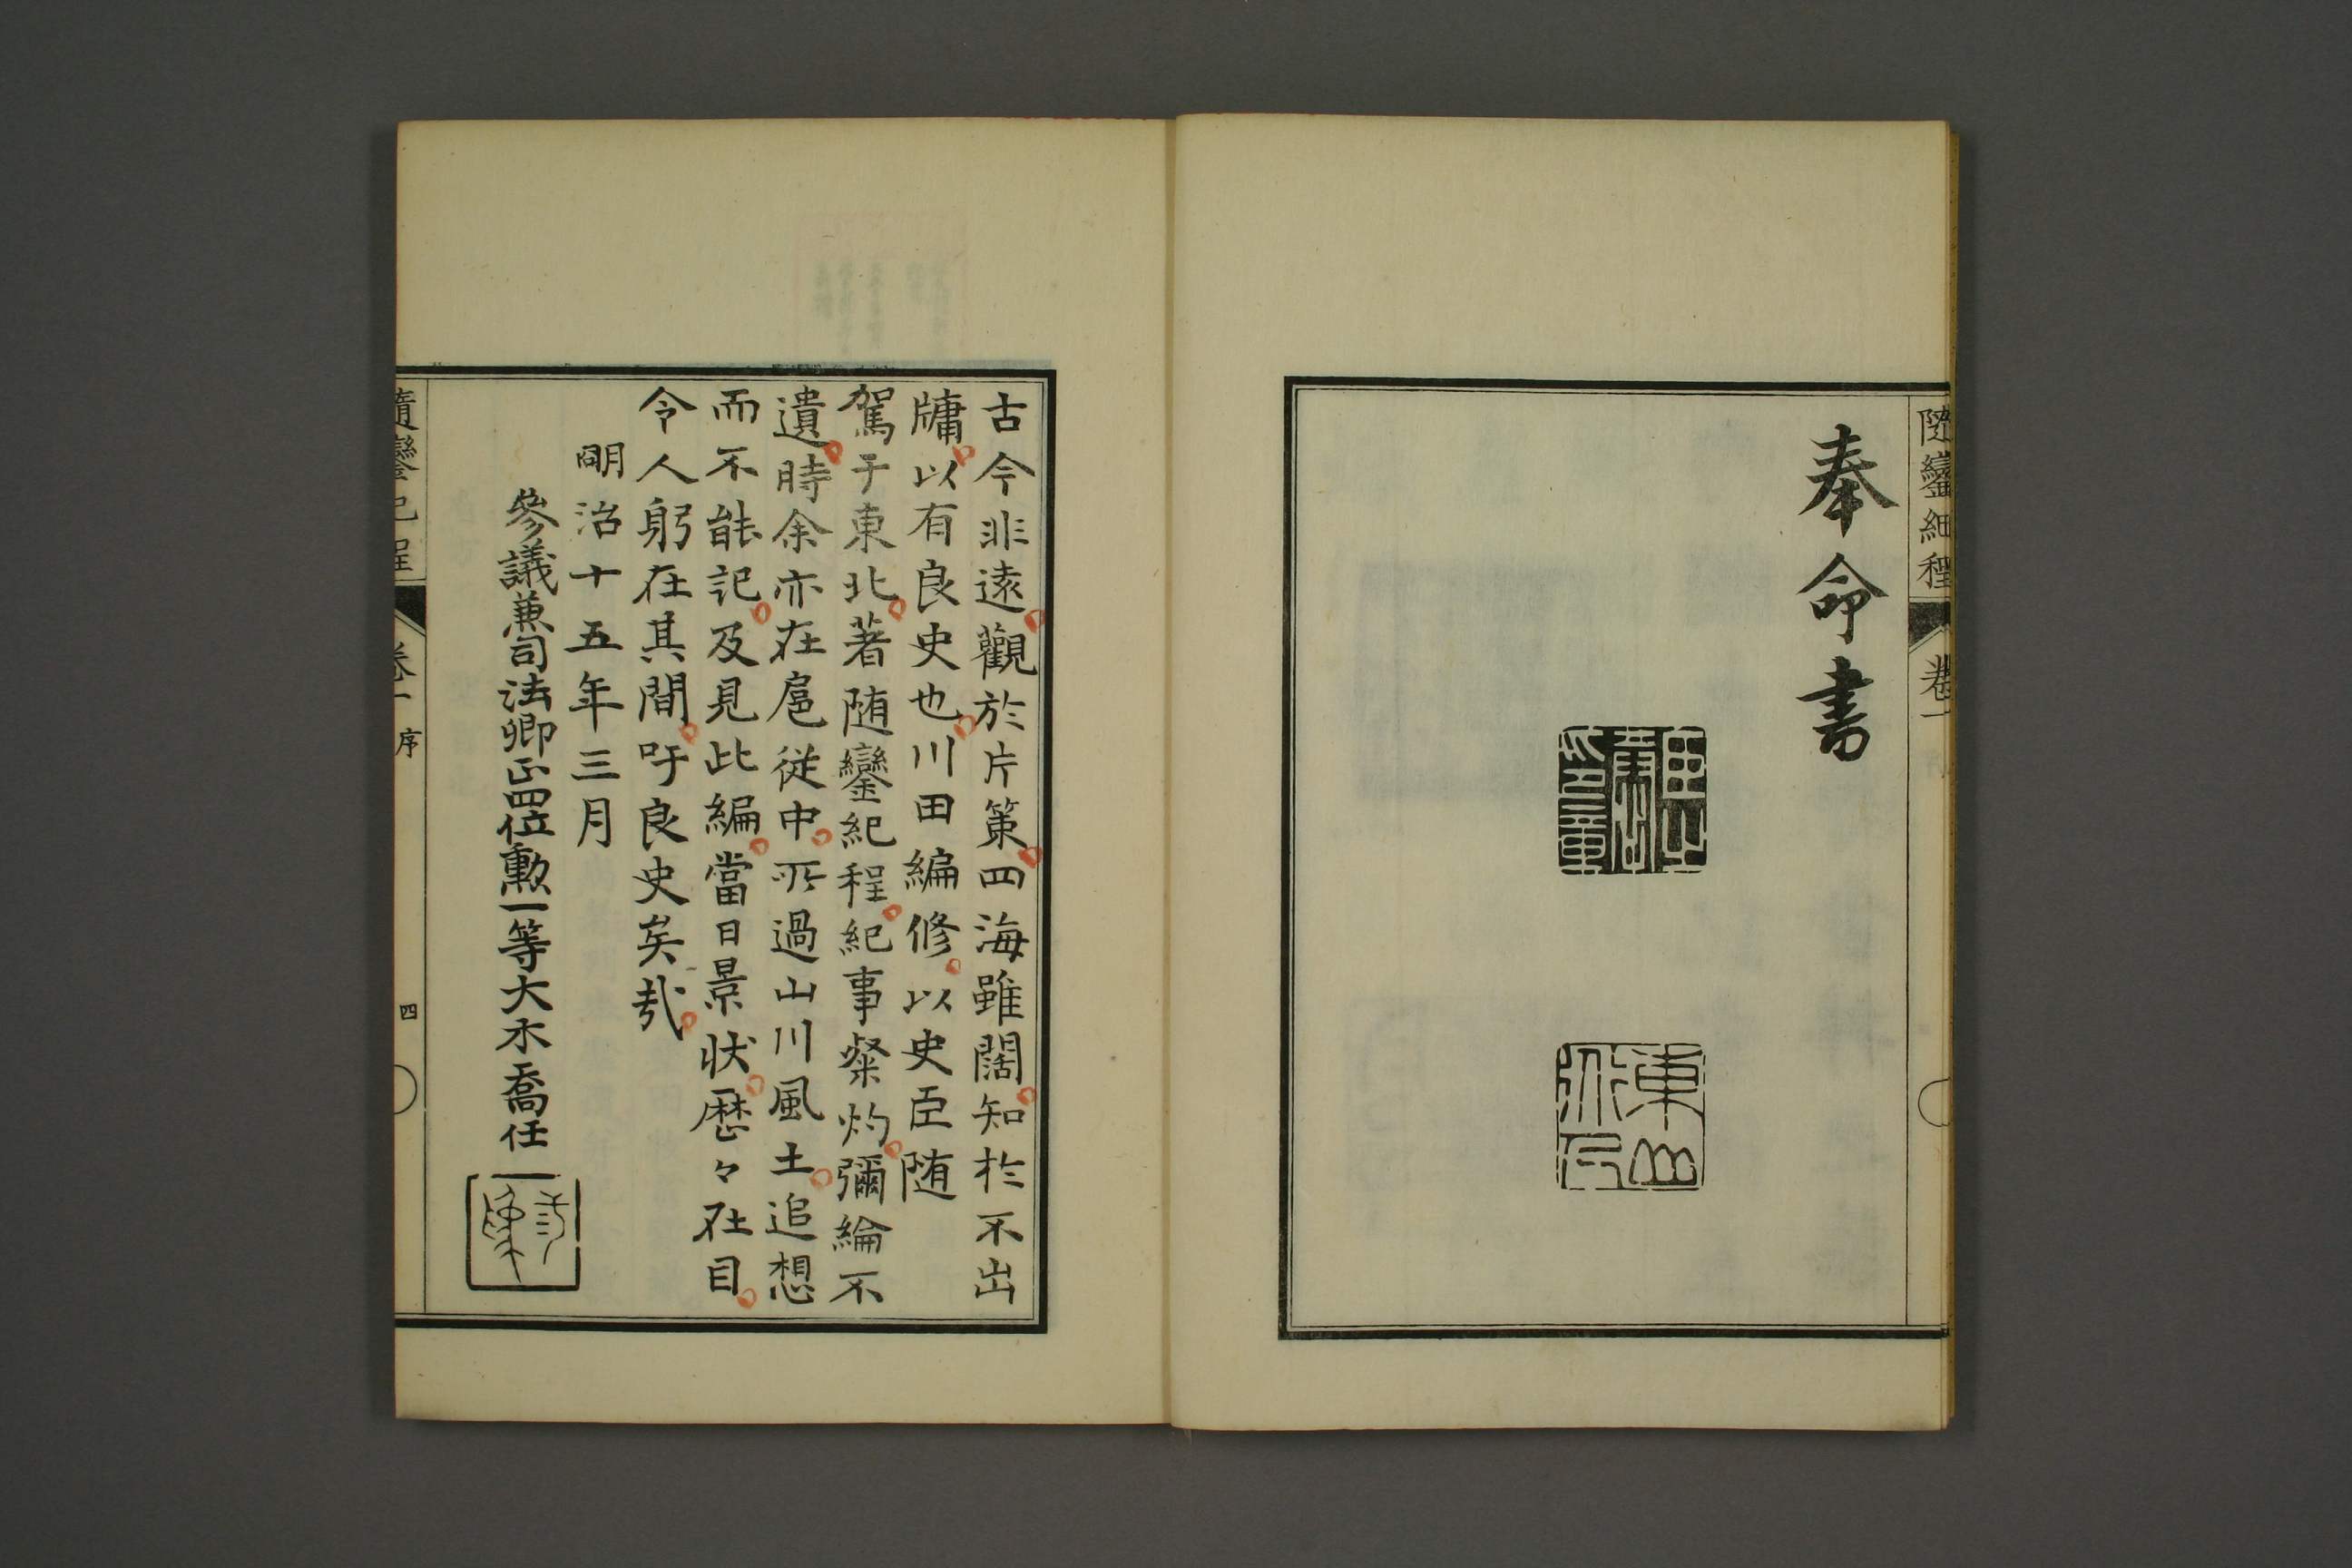 隨鑾紀程 卷一
奉命書
東山
古今非遠觀於片策四海雖闊知於不出
牗以有良史也川田編修以史臣随
駕于東北著随鑾紀程紀事粲灼彌綸不
遺時余亦在扈従中所過山川風土追想
而不能記及見此編當日景状歴々在目
令人躬在其間吁良史矣哉
明治十五年三月
參議兼司法卿正四位勳一等大木喬任
隨鑾紀程 卷一 序 四